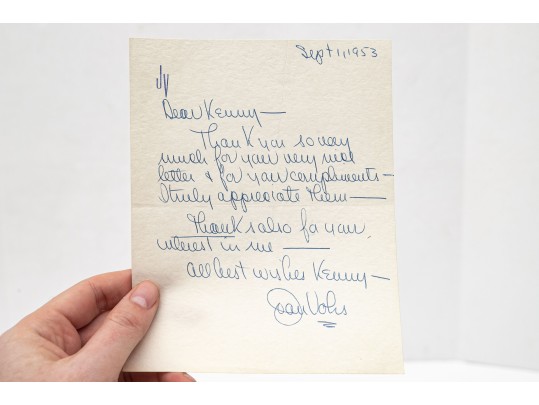 Sept 1, 1953
JV
Dear Kenny —
Thank you so very
much for your very nice
letter & for your compliments —
I truly appreciate them —
Thanks also for your
interest in me —
All best wishes Kenny —
Joan Vohs